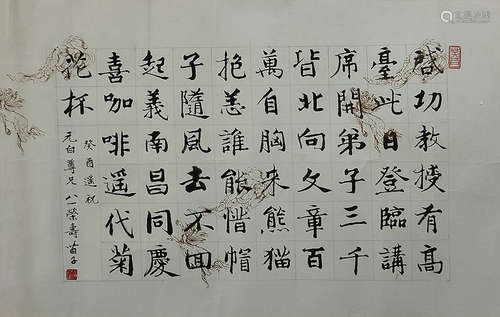 啟功教授有高
臺此日登臨講
席開第子三千
皆北向文章百
萬自胸來熊猫
抱恙誰能惜帽
子隨風去不囬
起義南昌同慶
喜咖啡遥代菊
花杯
癸酉遥祝
元白尊兄八一榮壽苗子